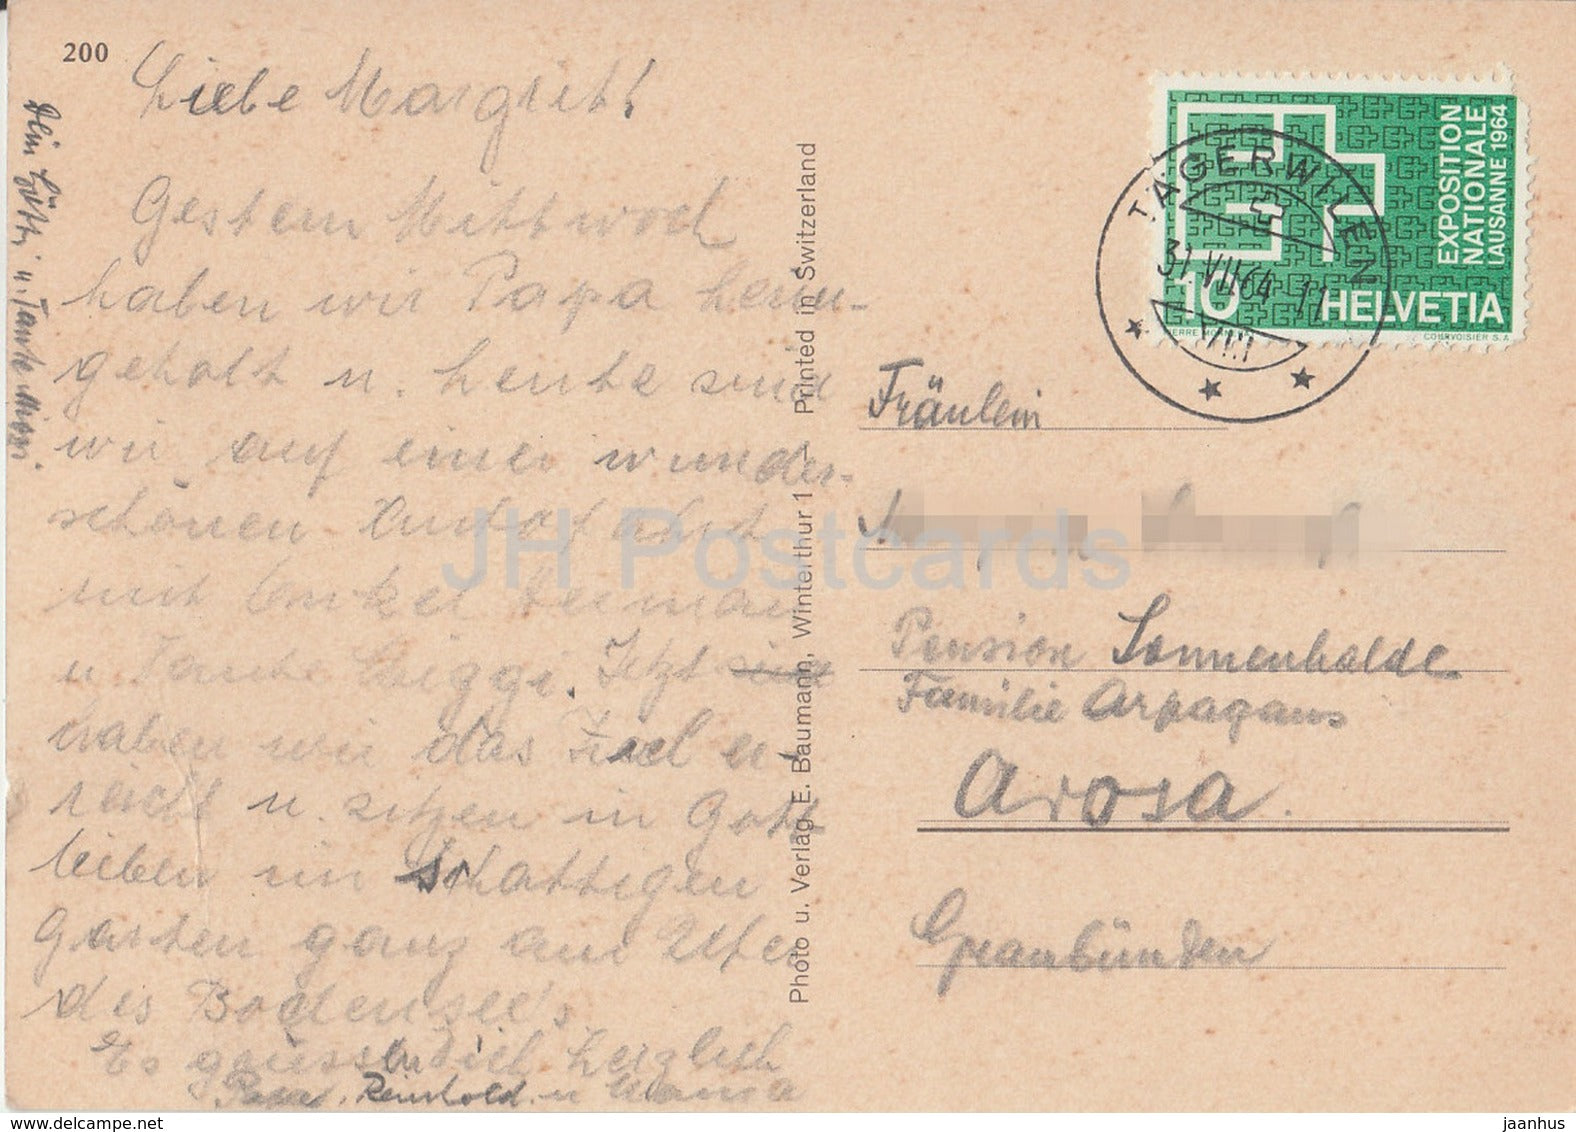 200
Liebe Margrit!
Gestern Mittwoch
haben wir Papa heim-
geholt u. heute sind
wir auf einer wunder-
schönen Autofahrt
mit Onkel Herman
u Tante Siggi. Jetzt
haben wir das Ziel er-
reicht u. sitzen in Gott
lieben im schattigen
Garten ganz am Ufer
des Bodensee's
Es grüsst Dich herzlich
Papa, Reinhold u Mama
Dein Götti u. Tante
Photo u. Verlag E. Baumann, Winterthur 1 - Printed in Switzerland
TÄGERWILEN
31.VII.64-11
EXPOSITION
NATIONALE
LAUSANNE 1964
10 HELVETIA
COURVOISIER S.A.
Fräulein
Pension Sonnenhalde
Familie Arpagaus
Arosa.
Graubünden
JH Postcards
delcampe.net
jaanhus